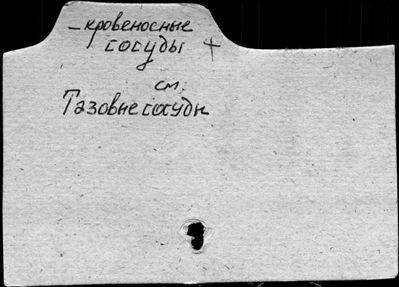 – кровеносные
сосуды +
см.
Тазовые сосуды